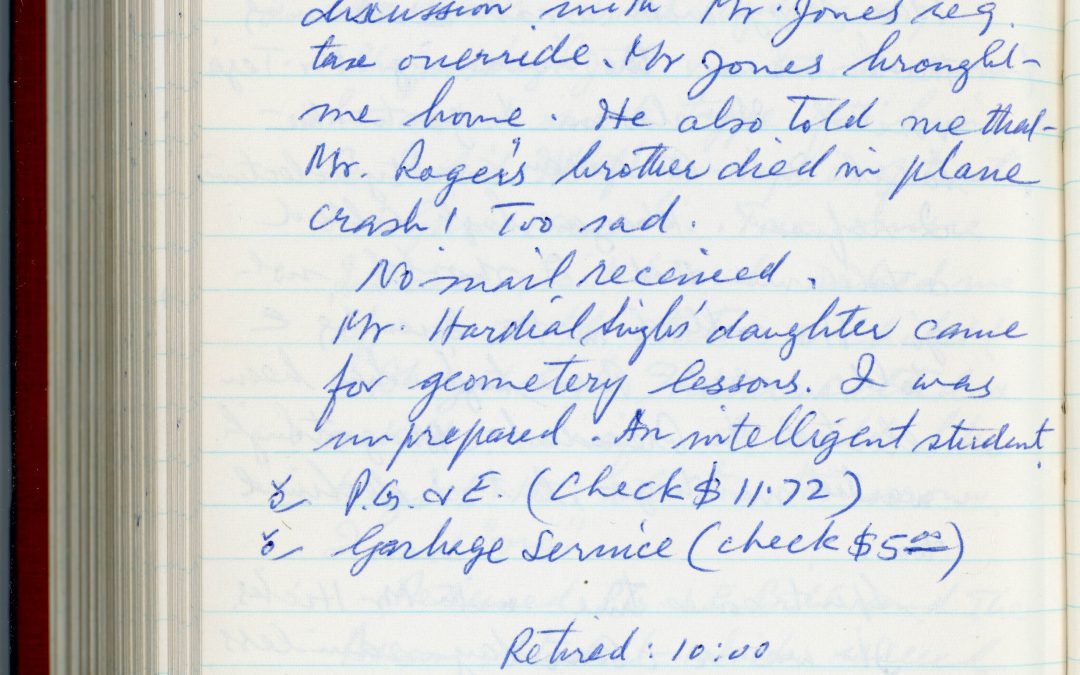 discussion with Mr. Jones reg.
tax override. Mr Jones brought
me home. He also told me that
Mr. Roger's brother died in plane
crash! Too sad.
No mail received.
Mr. Hardial Singh's daughter came
for geometery lessons. I was
unprepared. An intelligent student
P.G. & E. (Check $ 11.72)
Garbage Service (check $5.00)
Retired: 10:00